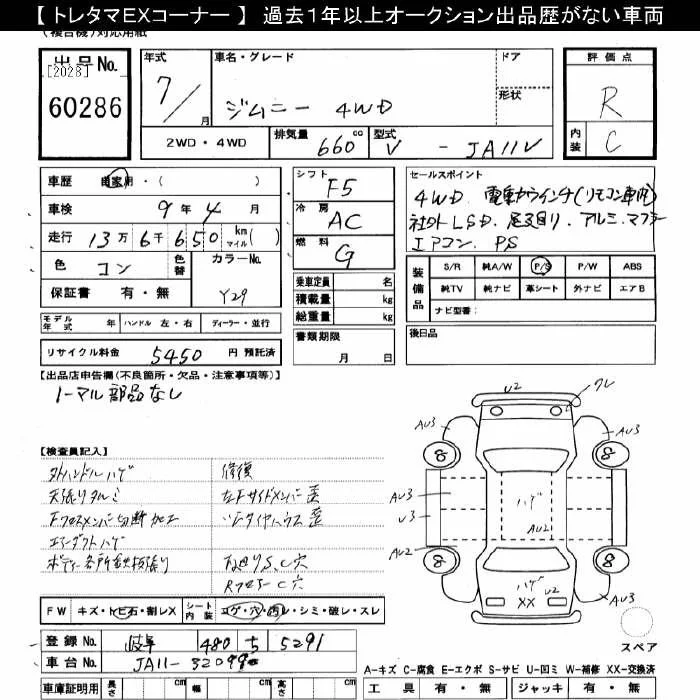 【 トレタマEXコーナー 】 過去1年以上オークション出品歴がない車両
(複合機)対応用紙
出品No.
[2028]
60286
年式
7/
月
車名・グレード
ジムニー 4WD
ドア
形状
評価点
R
内装
C
2WD・4WD
排気量
660
cc
型式
V - JA11V
車歴
自家用・( )
車検
9 年 4 月
走行
13万 6千 650 km マイル( )
色
コン
色替
カラーNo.
Y29
保証書 有・無
シフト
F5
冷房
AC
燃料
G
乗車定員 名
積載量 kg
総重量 kg
セールスポイント
4WD 電動ウインチ(リモコン車内)
社外LSD. 足廻り. アルミ. マフラー
エアコン. PS
装備品
S/R 純A/W P/S P/W ABS
純TV 純ナビ 革シート 外ナビ エアB
ナビ型番:
モデル年式 年 ハンドル 左・右 ディーラー・並行
書類期限
月 日
後日品
リサイクル料金 5450 円 預託済
【出品店申告欄(不良箇所・欠品・注意事項等)】
ノーマル部品なし
【検査員記入】
外ハンドルハゲ
天張りタルミ
Fクロスメンバー切断 加工
エアーダクトハゲ
ボディー各所
修復
左Fサイドメンバー歪
〃Fタイヤハウス歪
下廻りS,C穴
RフロアーC穴
FW キズ・トビ石・割レX
シート内装 コゲ・穴・切レ・シミ・破レ・スレ
登録No. 岐阜 480 ち 5291
車台No. JA11-
車庫証明用 長さ cm 幅 cm 高さ cm
U2
ワレ
AU3
AU3
8
8
AU3
U3
ハゲ
AU3
AU2
AU2
8
8
ハゲ
U2
XX
スペア
A-キズ C-腐食 E-エクボ S-サビ U-凹ミ W-補修 XX-交換済
工具 有・無 ジャッキ 有・無